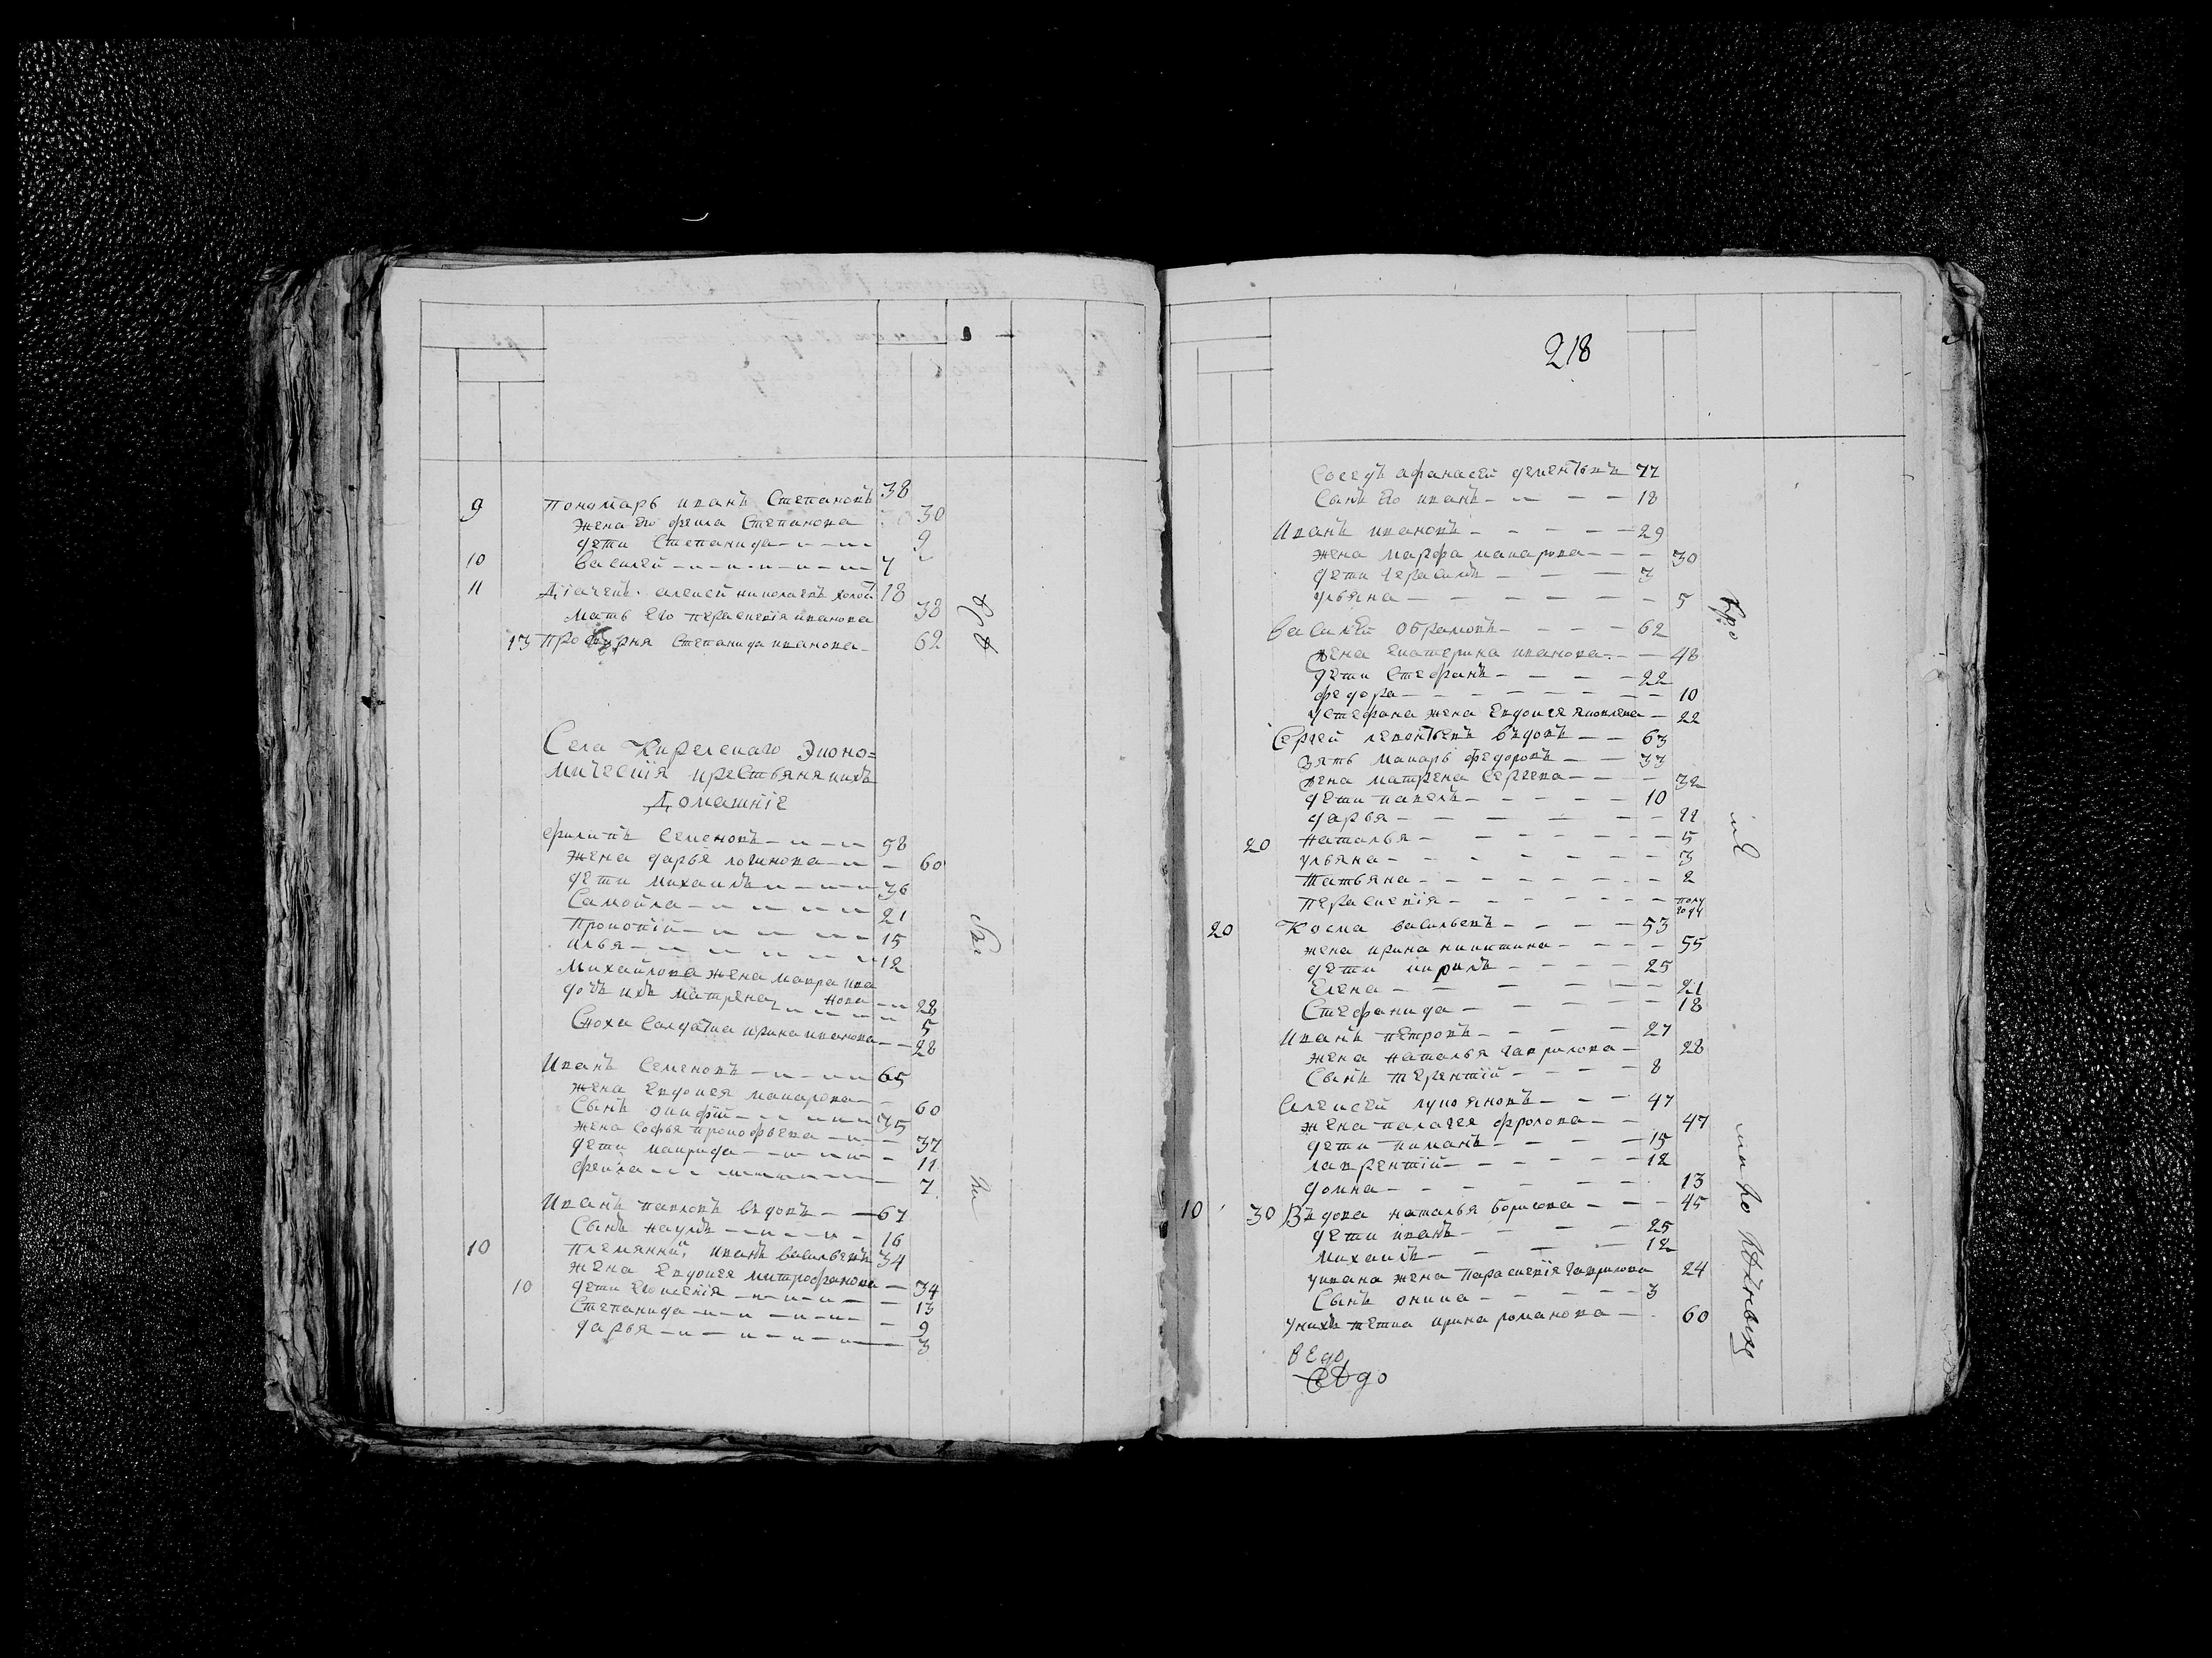 9 Пономарь иванъ Степановъ 38
жена Его фекла Степанова 30
дети Степанида 9
10 василей 7
11 Дiачекъ алексей николаевъ холостъ 18
мать Его параскевiя иванова 38
13 Просфирня Степанида иванова 62
Села Кирелскаго Эконо=
мическiя крестьяня ихъ
Домашнiе
филипъ Семеновъ 58
жена дарья логинова 60
дети михаилъ 36
Самойла 21
Прокопiй 15
илья 12
Михайлова жена мавра ива
нова 28
дочь ихъ матрена 5
Сноха Солдатка ирина иванова 28
Иванъ Семеновъ 65
жена Евдокея макарова 60
Сынъ онифiй 35
жена Софья прокофьева 37
дети маврида 11
фекла 7
Иванъ павловъ вдовъ 67
Сынъ наумъ 16
10 племянникъ иванъ васильевъ 34
жена Евдокея митрофанова 34
10 дети Евпсекiя 13
Степанида 9
дарья 3
218
Соседъ афанасей дементьевъ 77
Сынъ Его иванъ 18
Иванъ ивановъ 29
жена марфа макарова 30
дети Герасимъ 3
ульяна 5
василей Обрамовъ 62
жена Екатерина иванова 48
дети Стефанъ 22
федора 10
устефана жена Евдокея яковлева 22
Сергей леонтьевъ вдовъ 63
зять макаръ федоровъ 33
жена матрена Сергеева 32
дети павелъ 10
дарья 11
20 наталья 5
ульяна 3
татьяна 2
параскевiя полу
году
20 Косма васильевъ 53
жена ирина никитина 55
дети кирилъ 25
Елена 21
Стефанида 18
иванъ петровъ 27
жена наталья гаврилова 28
Сынъ терентiй 8
алексей лукояновъ 47
жена палагея фролова 47
дети киманъ 15
лаврентiй 12
домна 13
10 30 Вдова наталья борисова 45
дети иванъ 25
михаилъ 12
уивана жена параскевiя гаврилова 24
Сынъ оника 3
унихъ тетка ирина романова 60